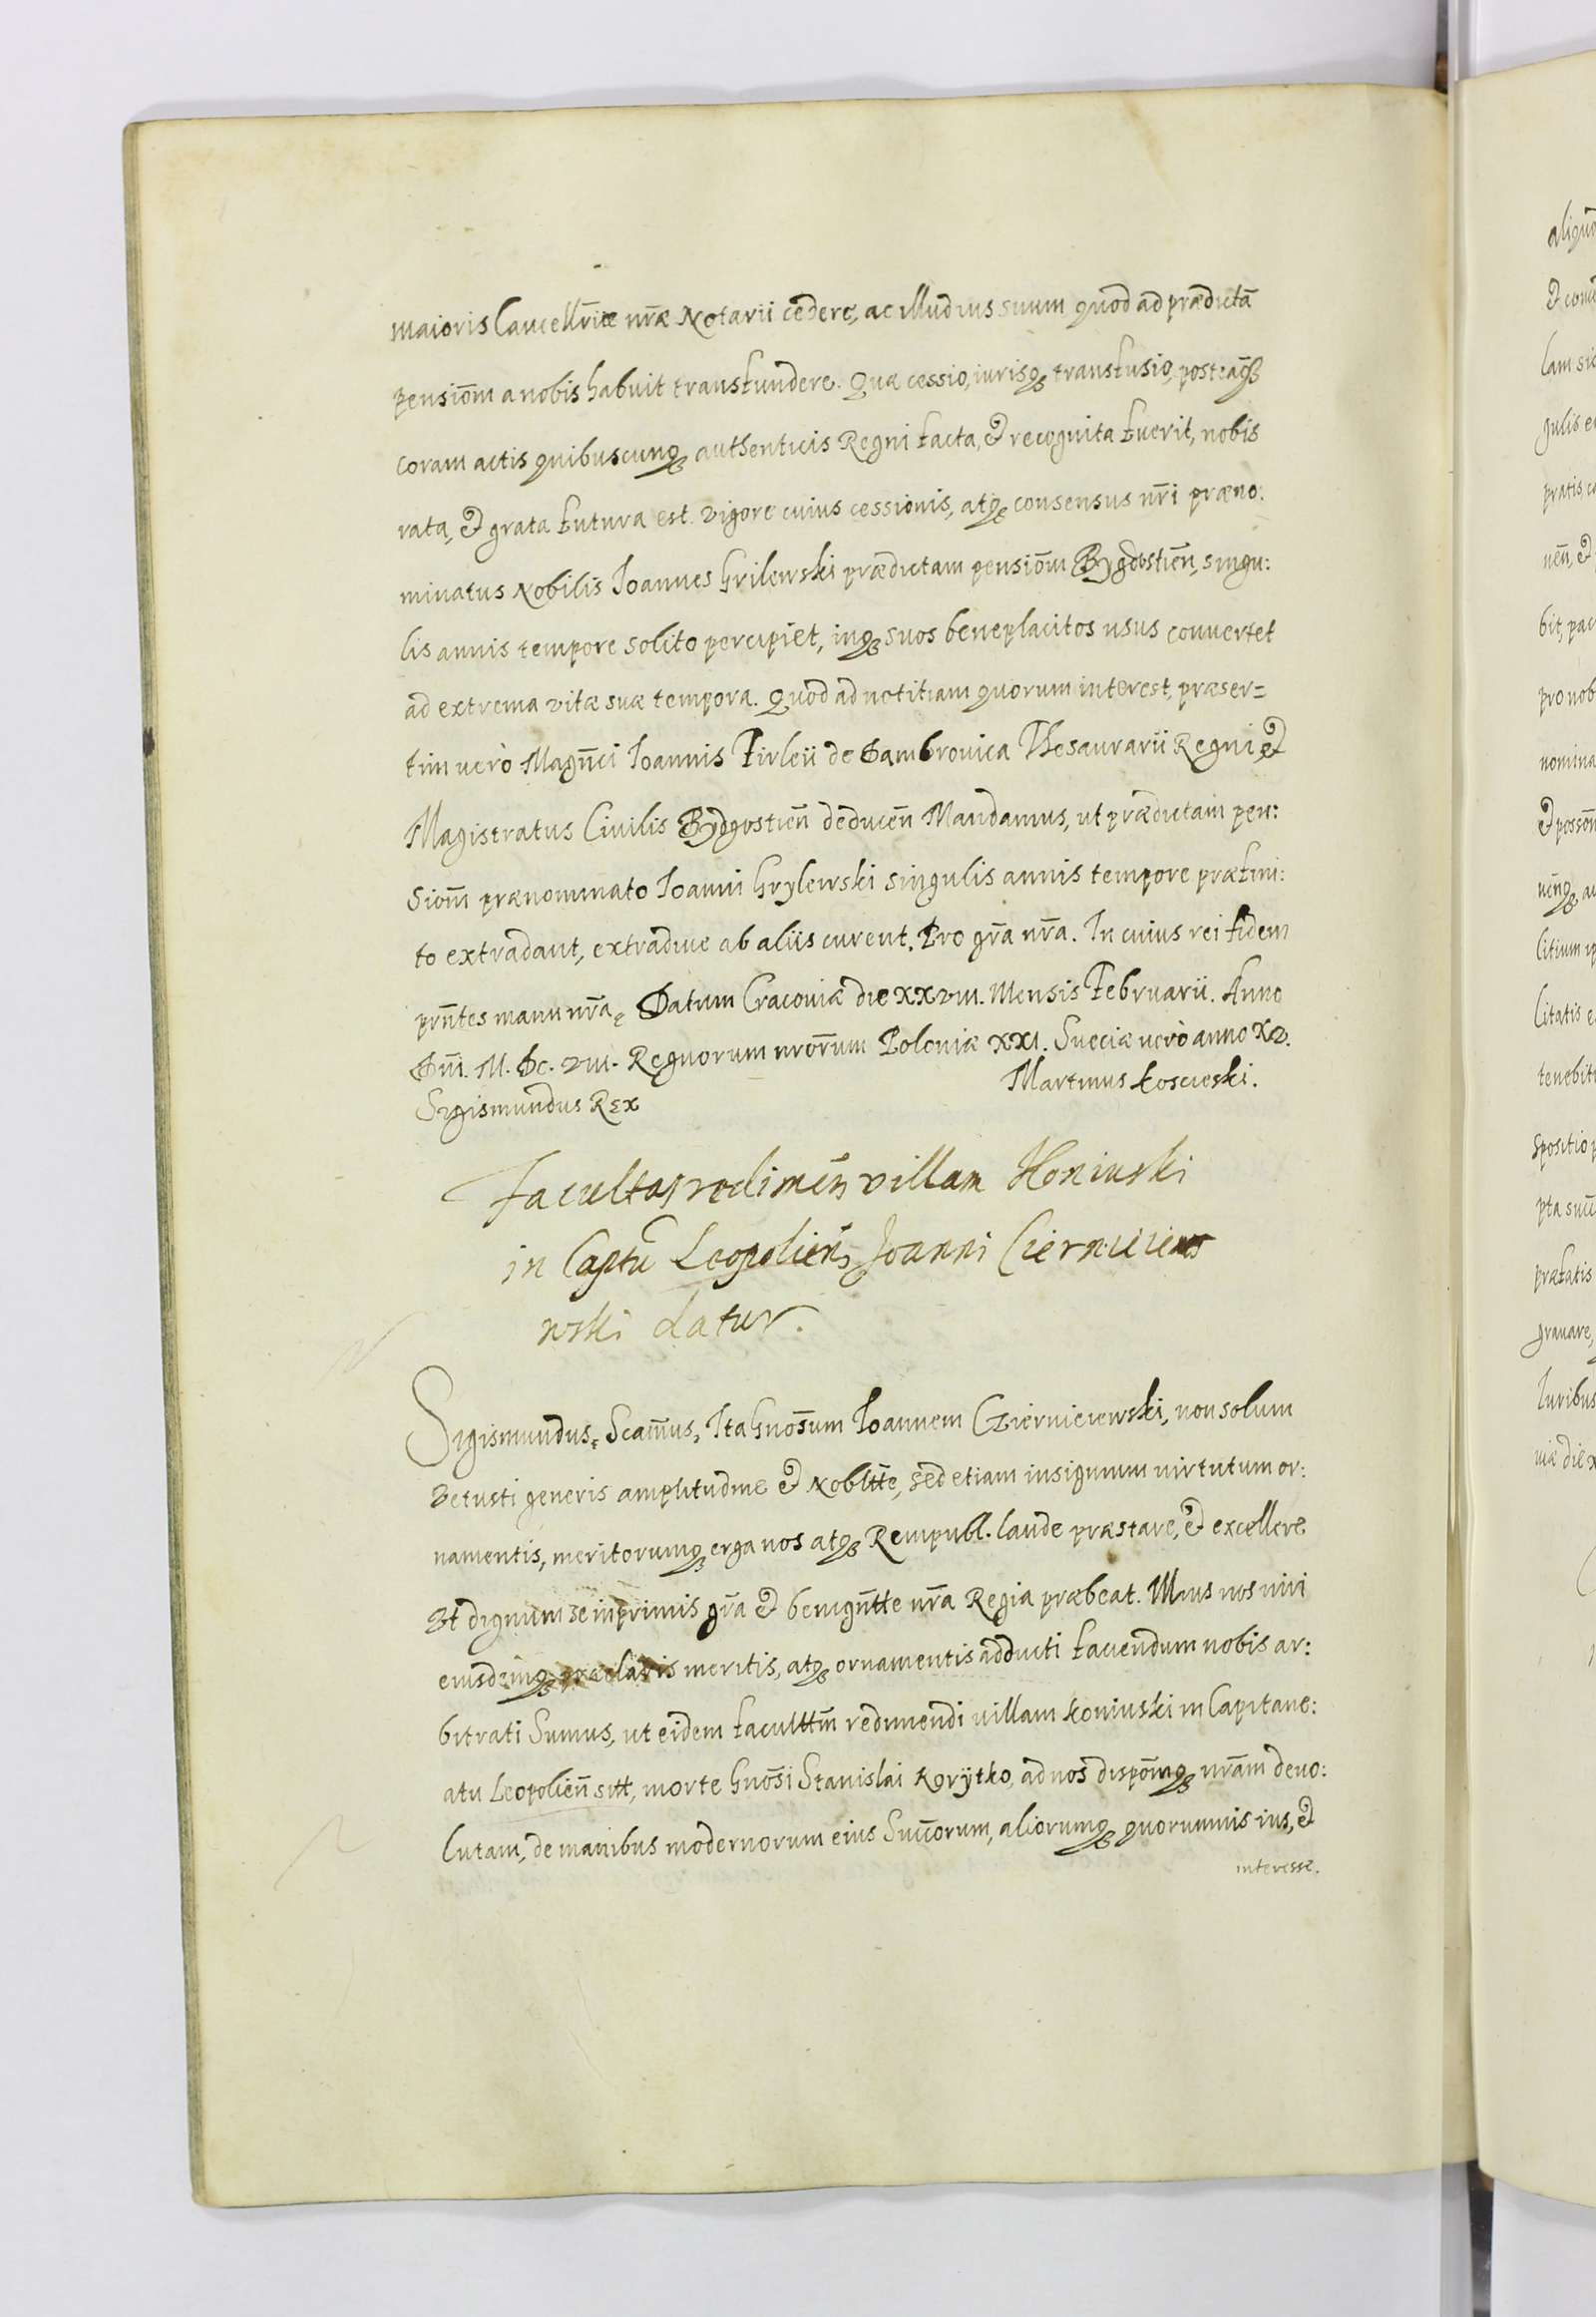 maioris Cancellr̃iæ nr̃æ Notarii cedere, ac illud ius suum quod ad prædictã
pensiõm a nobis habuit transfundere. Quæ cessio, iurisq₃ transfusio, posteaq̃₃
coram actis quibuscunq₃ authenticis Regni facta, & recognita fuerit, nobis
rata, & grata futura est. vigore cuius cessionis, atq₃ consensus nr̃i præno:
minatus Nobilis Ioannes Grilewski prædictam pensiõm Bygdostien̄, singu:
lis annis tempore solito percipiet, inq₃ suos beneplacitos usus convertet
ad extrema vitæ suæ tempora. Quod ad notitiam quorum interest, præser=
tim verò Magñci Ioannis Firleii de Dambrovica Thesaurarii Regni, &
Magistratus Civilis Bydgostien̄ deducen̄ Mandamus, ut prædictam pen:
siom̄ prænominato Ioanni Grylewski singulis annis tempore præfini:
to extradant, extradive ab aliis curent. Pro gr̃a nr̃a. In cuius rei fidem
prñtes manu nr̃a. Datum Cracoviæ die XXVIII. Mensis Februarii. Anno
Dm̄. M. Dc. VIII. Regnorum nrõrum Poloniæ XXI. Sueciæ verò anno XV.
Martinus Koscieski.
Sigismundus Rex
Facultas redimen̄ villam Koniuski
in Captũ Leopolien̄ Joanni Cierniciew
wski datur.
Sigismundus, Scam̄us, Ita Gnõsum Ioannem Czierniciewski, non solum
Vetusti generis amplitudine & Nobltt̃e, sed etiam insignium virtutum or:
namentis, meritorumq₃ erga nos atq₃ Rempubl. laude præstare, & excellere
Vt dignum se inprimis gr̃a & benignt̃te nr̃a Regia præbeat. Hius nos viri
eiusdemq₃ præclaris meritis, atq₃ ornamentis adducti faciendum nobis ar:
bitrati Sumus, ut eidem faculttm̃ redimendi villam Koniuski in Capitane:
atu Leopolien̄ sitt, morte Gnõsi Stanislai Korÿtko, ad nos dispõmq₃ nr̃am devo:
lutam, de manibus modernorum eius Succ̃orum, aliorumq₃ quorumvis ius, &
interesse.